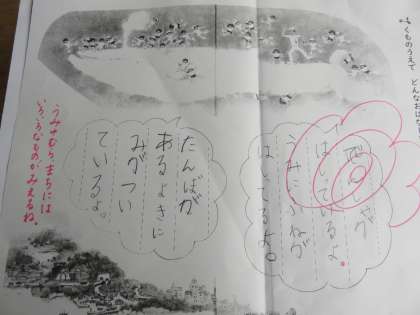 くものうえで どんなおはな
でんしゃが
はしっているよ。
うみにふねが
はしってるよ。
たんぼが
あるよきに
みがつい
ているよ。
うみやむら、まちには
いろいろなものがみえるね。